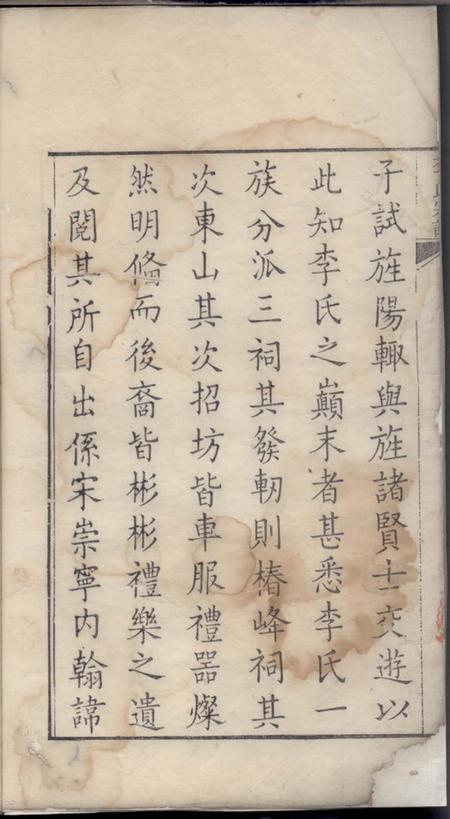 子試旌陽輙與旌諸賢士交遊以
此知李氏之巔末者甚悉李氏一
族分派三祠其發軔則椿峰祠其
次東山其次招坊皆車服禮器燦
然明脩而後裔皆彬彬禮樂之遺
及閱其所自出係宋崇寧内翰諱